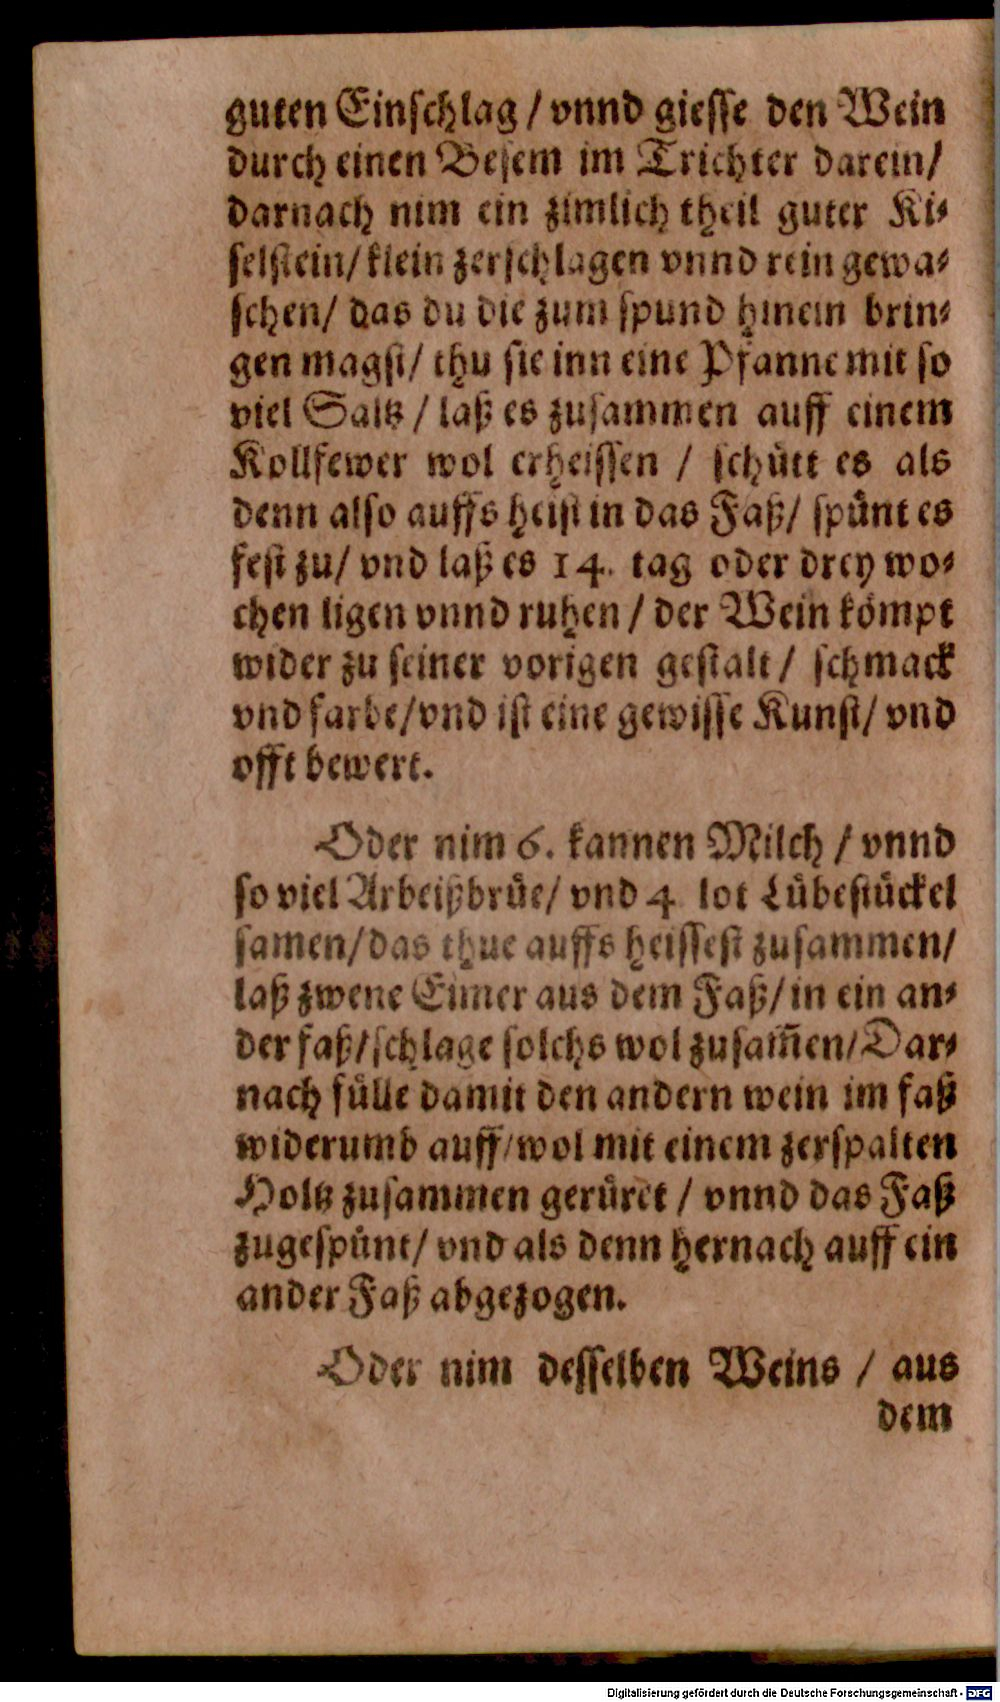 guten Einschlag / vnnd giesse den Wein
durch einen Besem im Trichter darein/
darnach nim ein zimlich theil guter Ki⸗
selstein/ klein zerschlagen vnnd rein gewa⸗
schen/ das du die zum spund hinein brin⸗
gen magst/ thu sie inn eine Pfanne mit so
viel Saltz / laß es zusammen auff einem
Kollfewer wol erheissen / schuͤtt es als
denn also auffs heist in das Faß/ spuͤnt es
fest zu/ vnd laß es 14. tag oder drey wo⸗
chen ligen vnnd ruhen / der Wein koͤmpt
wider zu seiner vorigen gestalt / schmack
vnd farbe/vnd ist eine gewisse Kunst/ vnd
offt bewert.
Oder nim 6. kannen Milch / vnnd
so viel Arbeißbruͤe/ vnd 4 lot Luͤbestuͤckel
samen/das thue auffs heissest zusammen/
laß zwene Eimer aus dem Faß/ in ein an⸗
der faß/schlage solchs wol zusam̃en/Dar⸗
nach fuͤlle damit den andern wein im faß
widerumb auff/wol mit einem zerspalten
Holtz zusammen geruͤret / vnnd das Faß
zugespuͤnt/ vnd als denn hernach auff ein
ander Faß abgezogen.
Oder nim desselben Weins / aus
dem
Digitalisierung gefördert durch die Deutsche Forschungsgemeinschaft - DFG